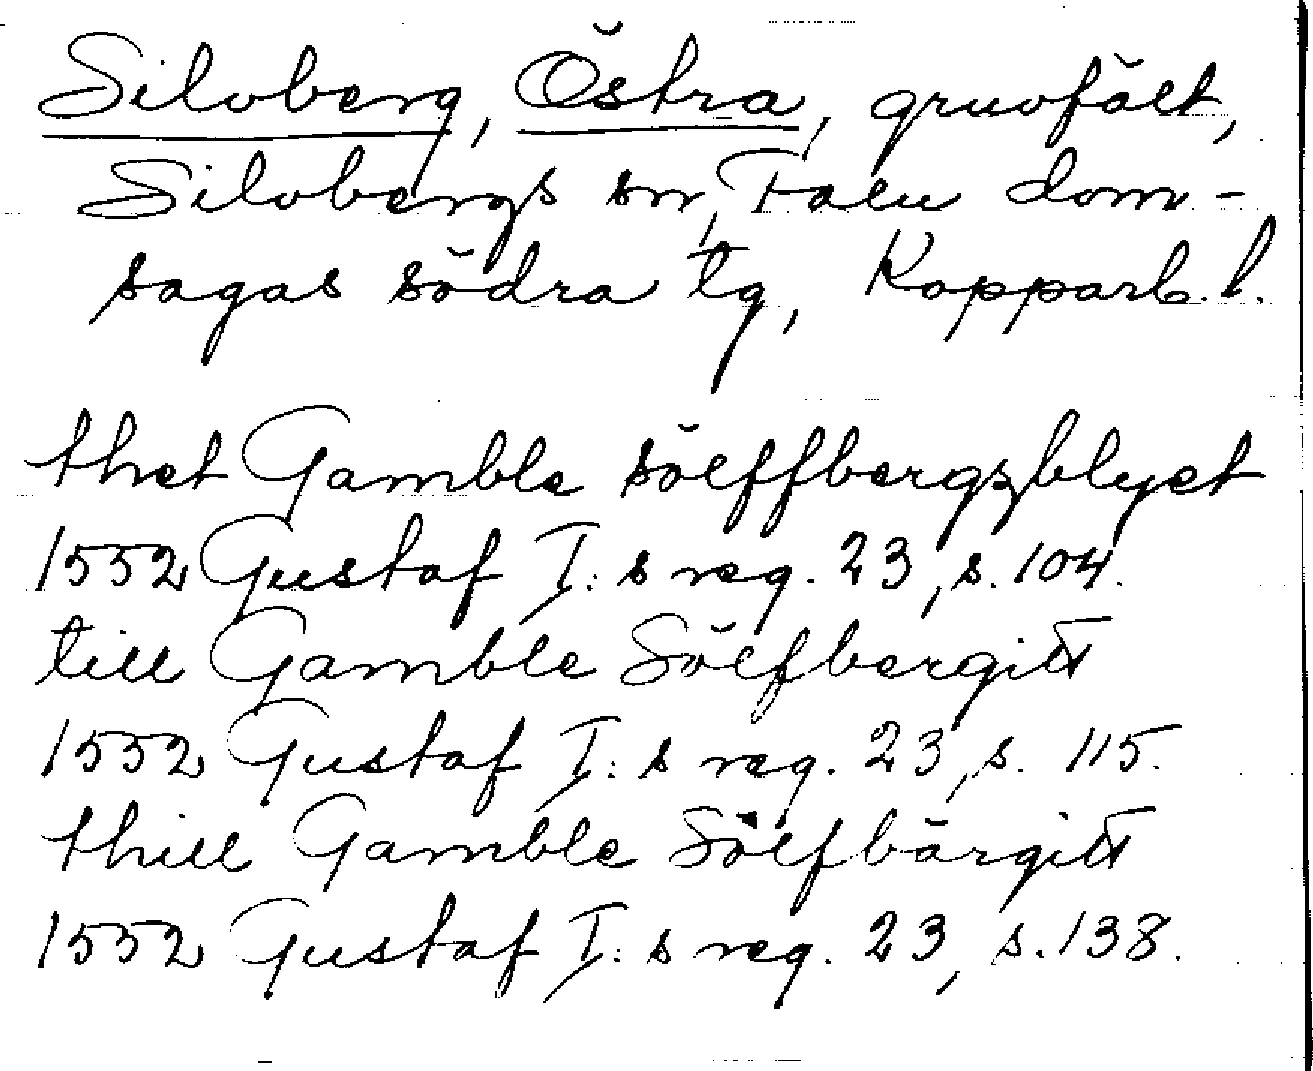 Silvberg, Östra, gruvfält,
Silvbergs sn, Falu dom-
sagas södra tg, Kopparb. l.
thet Gamble sölffbergsblyet
1552 Gustaf I:s reg. 23, s. 104.
till Gamble Sölfbergitt
1552 Gustaf I:s reg. 23, s. 115.
thill Gamble Sölfbärgitt
1552 Gustaf I:s reg. 23, s. 138.